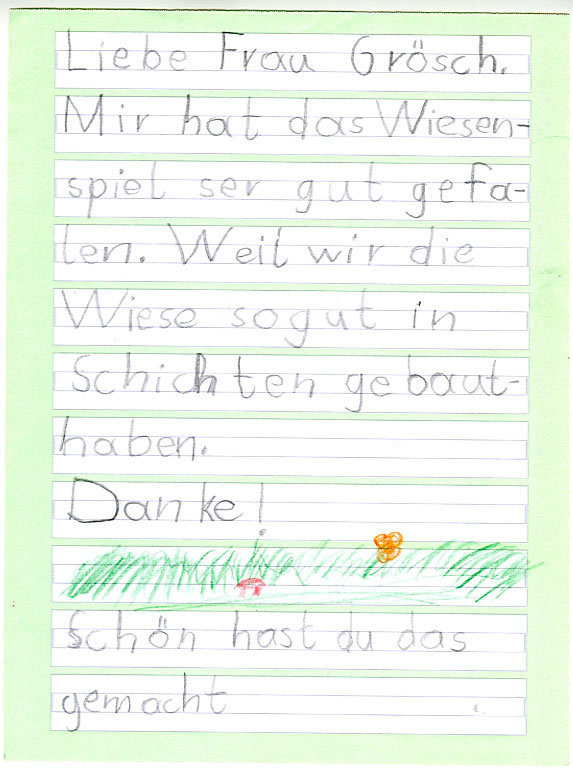 Liebe Frau Grösch.
Mir hat das Wiesen-
spiel ser gut gefa-
len. Weil wir die
Wiese sogut in
Schichten gebaut-
haben.
Danke!
Schön hast du das
gemacht